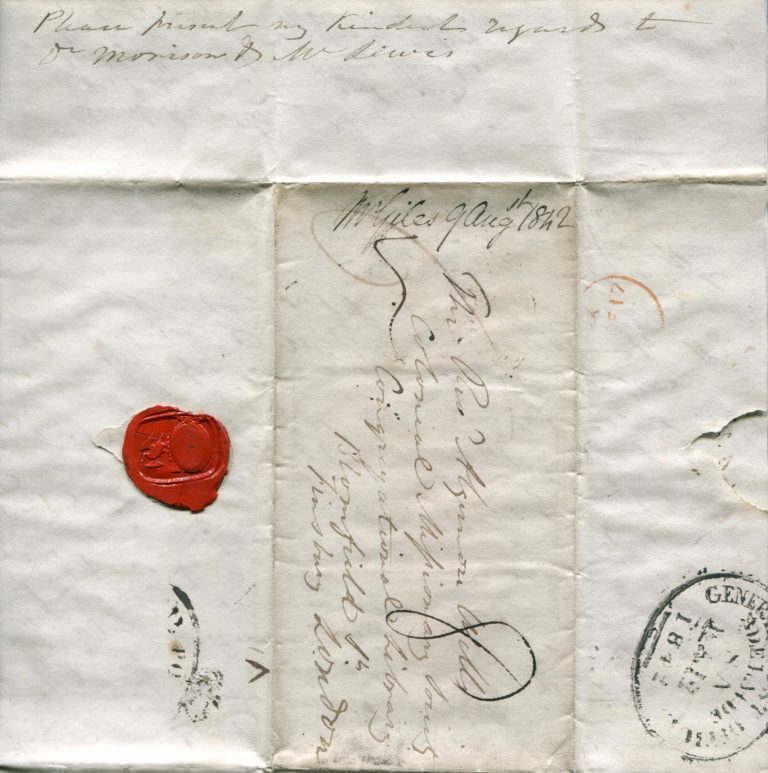 Please present my kindest regards to
Dr Morison & Mr Lewis
Mr Giles 9 Augst 1842
The Rev Algernon Wells
Colonial Missionary Society
Congregational Library
Blomfield St
Finsbury London
8
GENERAL
ADELAIDE
1842